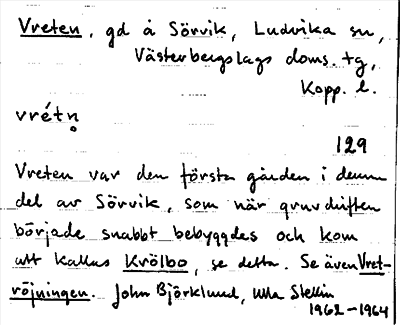 Vreten, gd å Sörvik, Ludvika sn,
Västerbergslags doms. tg,
Kopp. l.
vrétn̥
129
Vreten var den första gården i denna
del av Sörvik, som när gruvdriften
började snabbt bebyggdes och kom
att kallas Krölbo, se detta. Se även Vret-
röjningen. John Björklund, Ulla Stellin
1962-1964